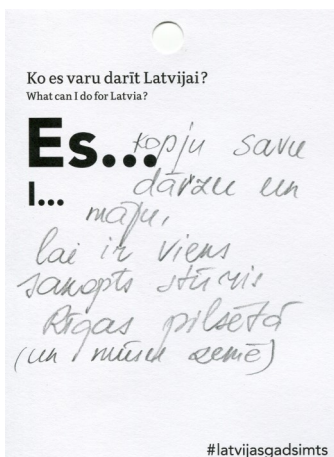 Ko es varu darīt Latvijai?
What can I do for Latvia?
Es...
kopju savu
I...
dārzu un
māju,
lai ir viens
sakopts stūris
Rīgas pilsētā
(un mūsu zemē)
#latvijasgadsimts